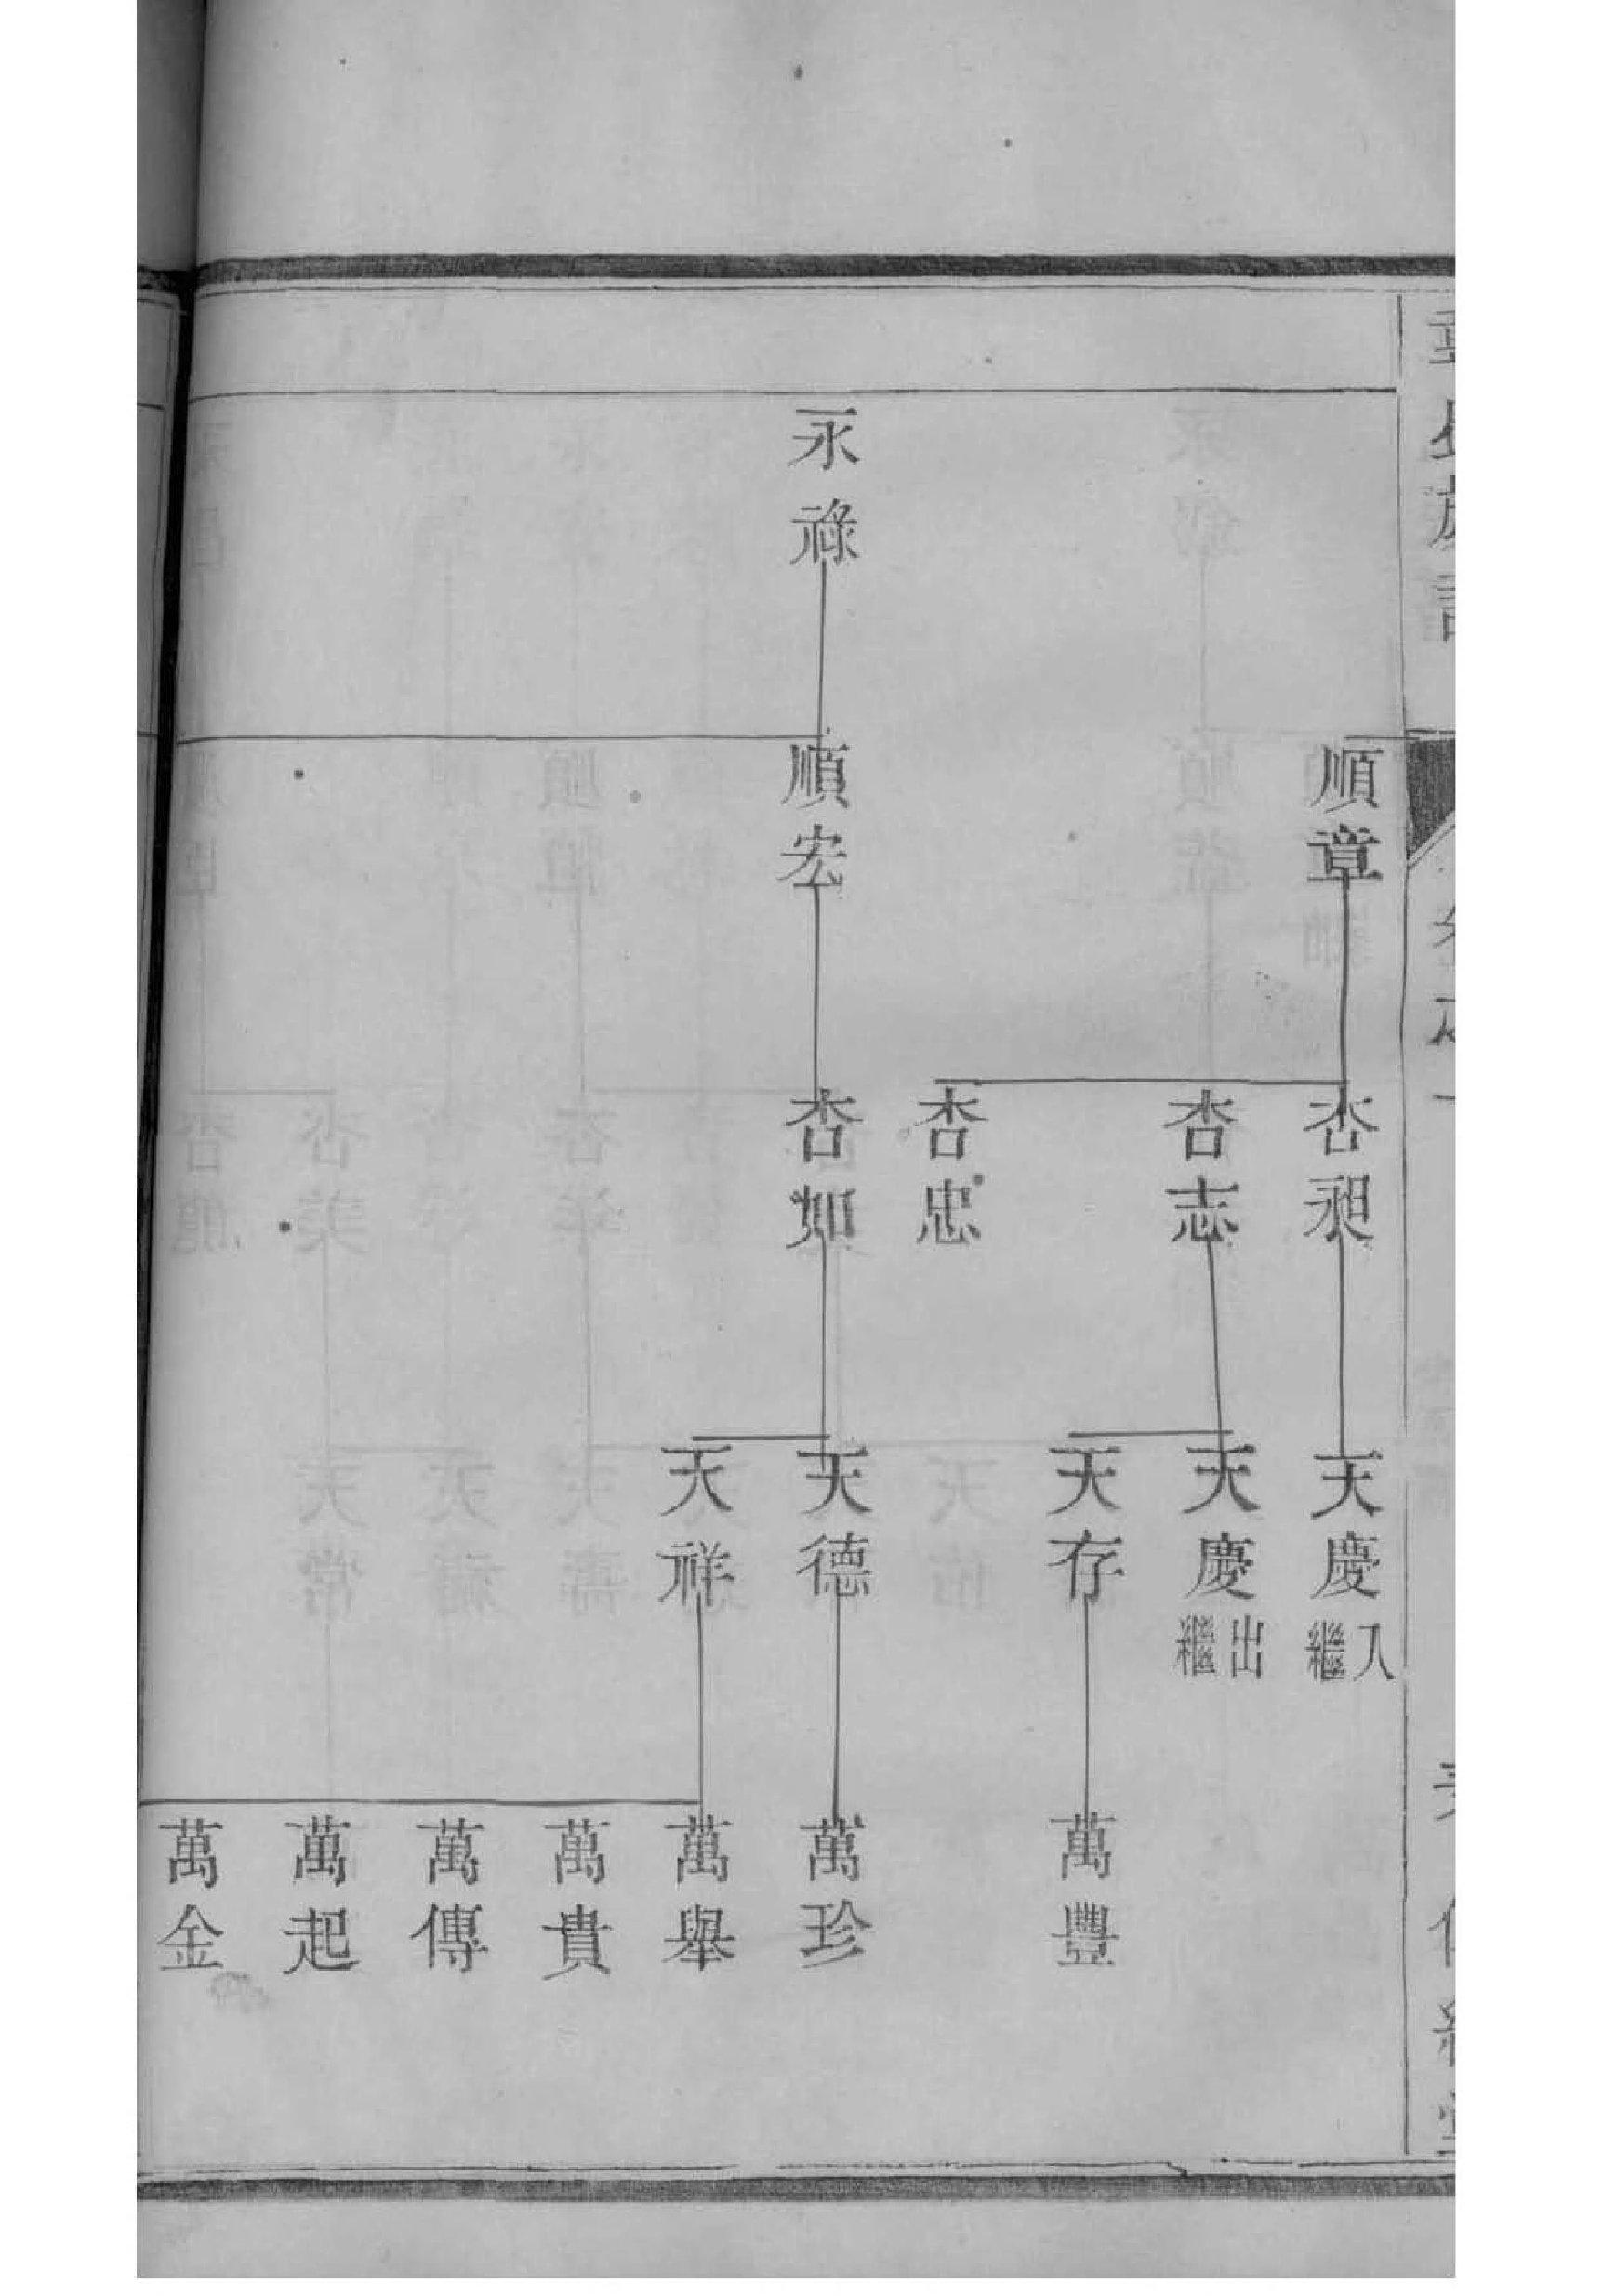 順章
杏昶
天慶
入繼
杏志
天慶
出繼
天存
萬豐
杏忠
永祿
順宏
杏如
天德
萬珍
天祥
萬舉
萬貴
萬傳
萬起
萬金